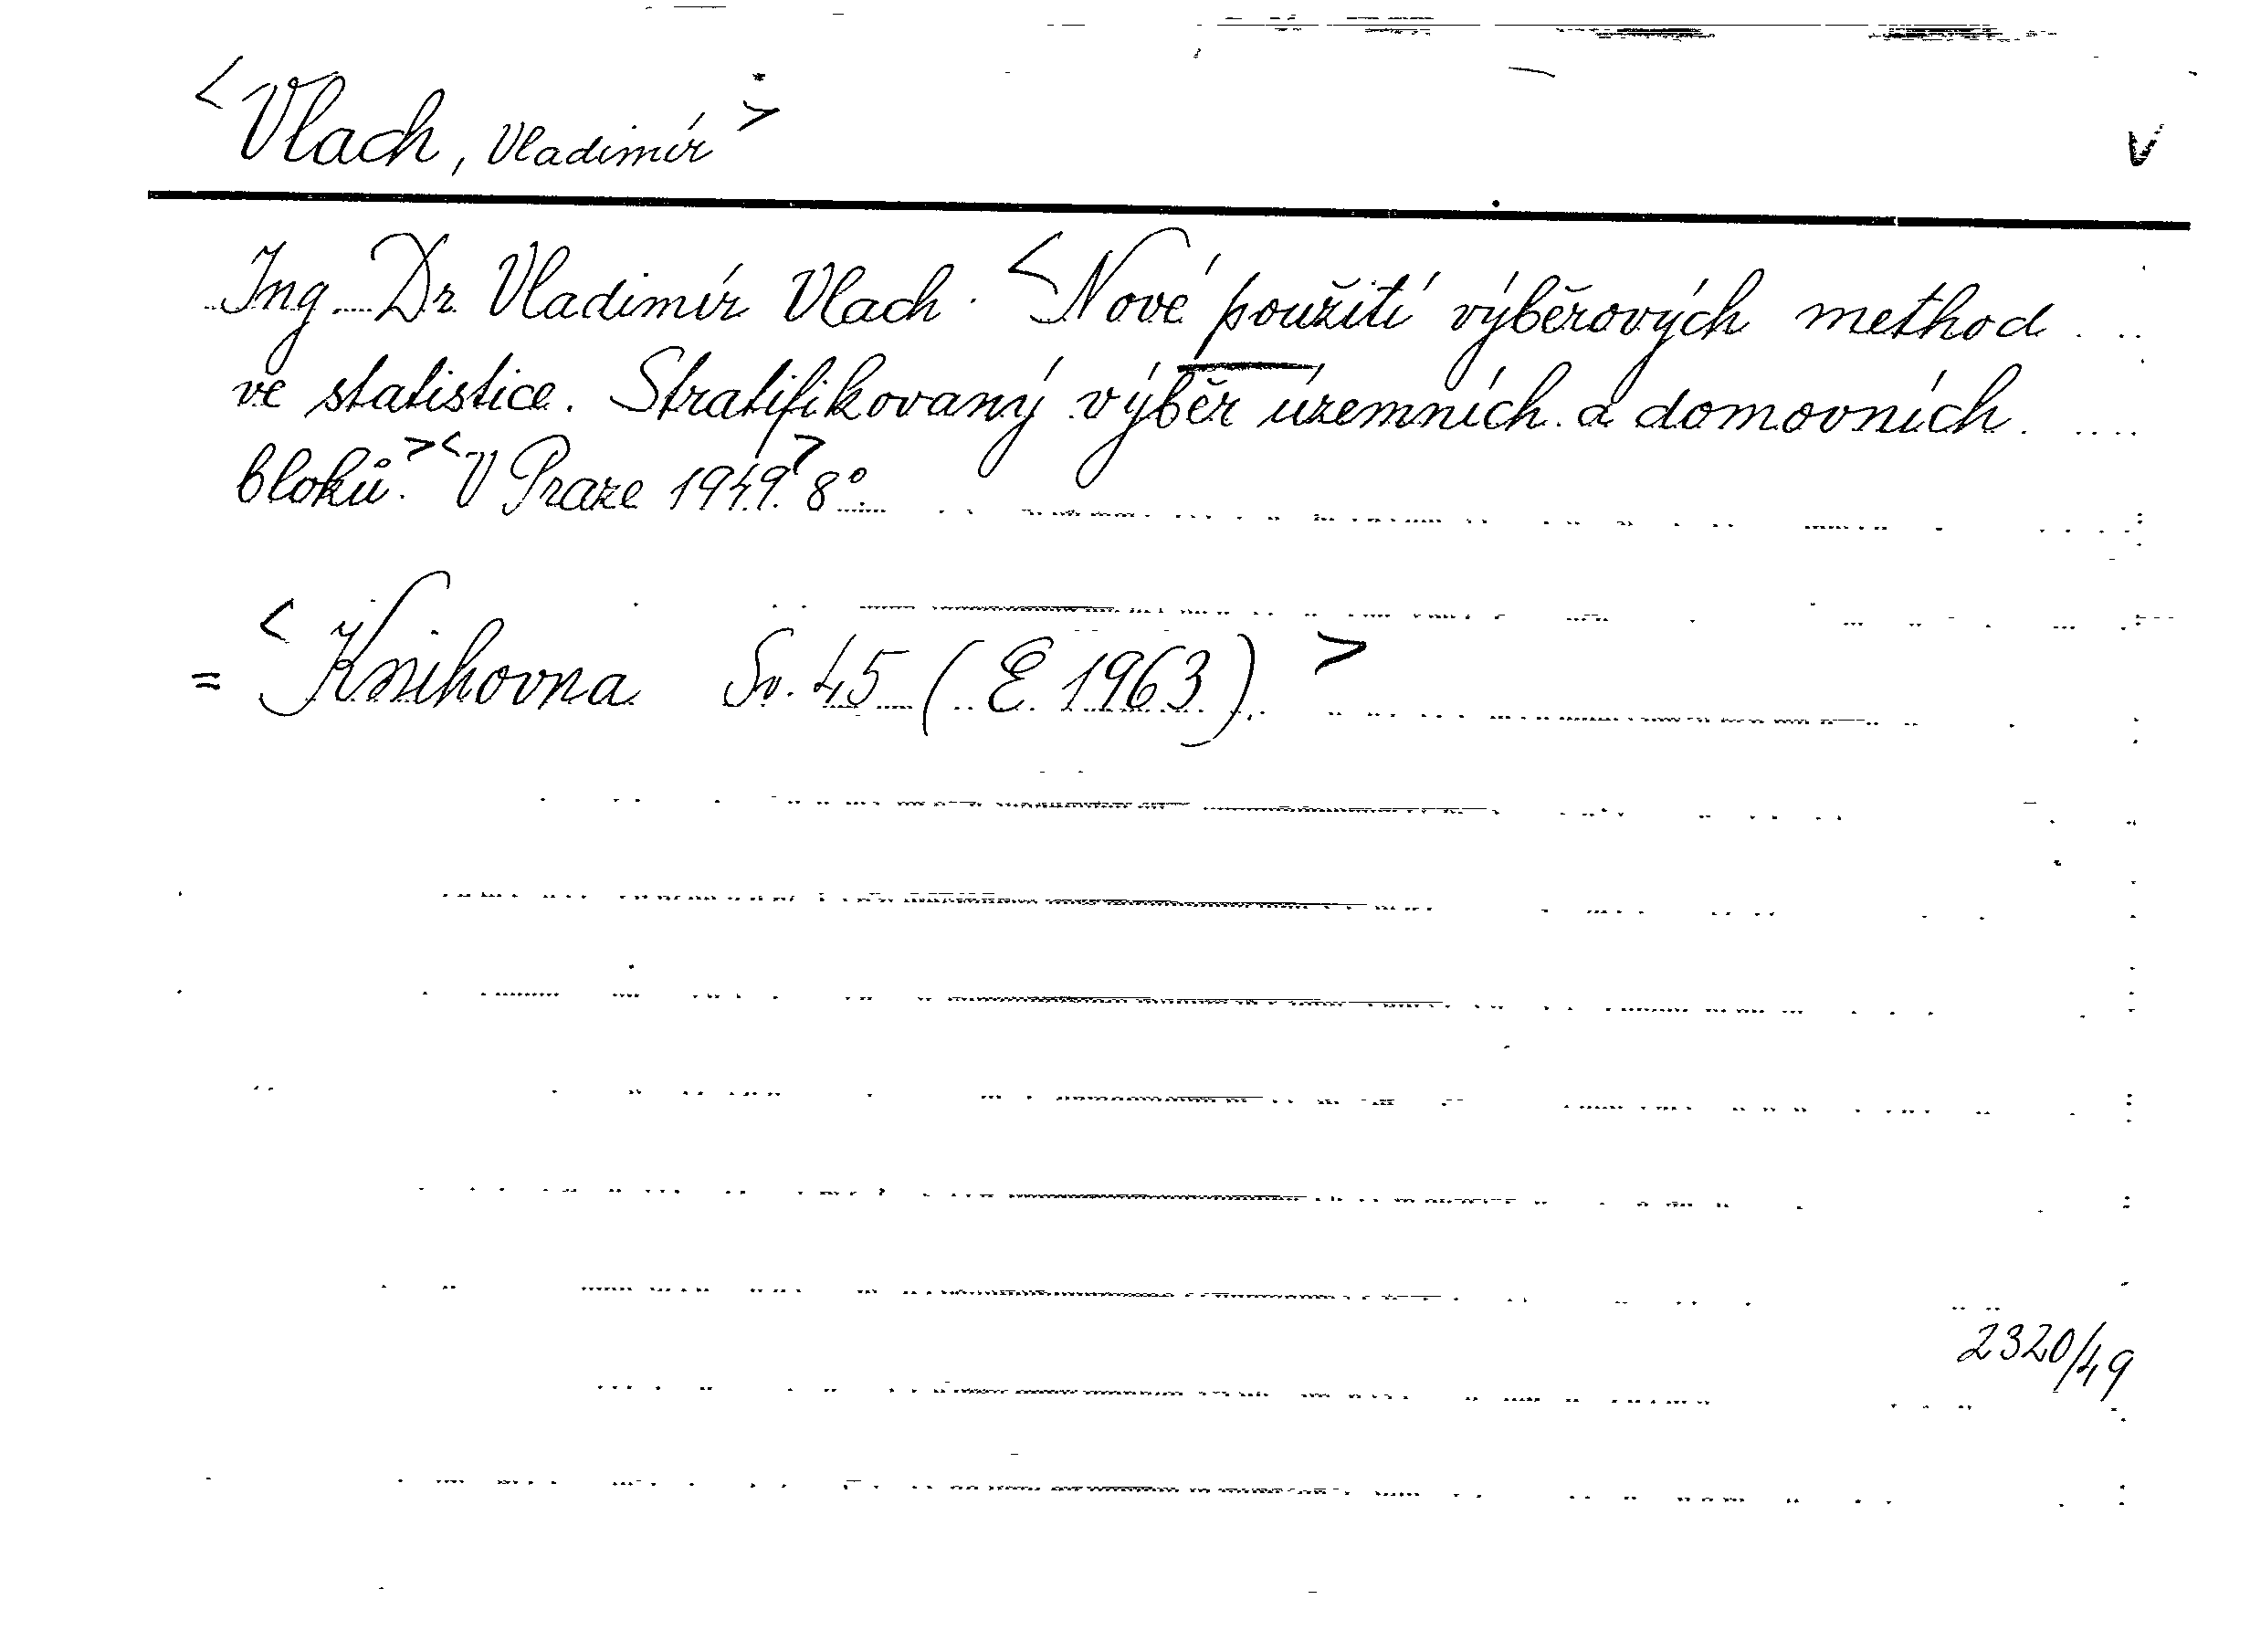 <Vlach, Vladimír>
V
Ing. Dr. Vladimír Vlach. <Nové použití výběrových method
ve statistice. Stratifikovaný výběr územních a domovních
bloků.> <V Praze 1949.> 8°.
= <Knihovna Sv. 45 (E 1963).>
2320/49